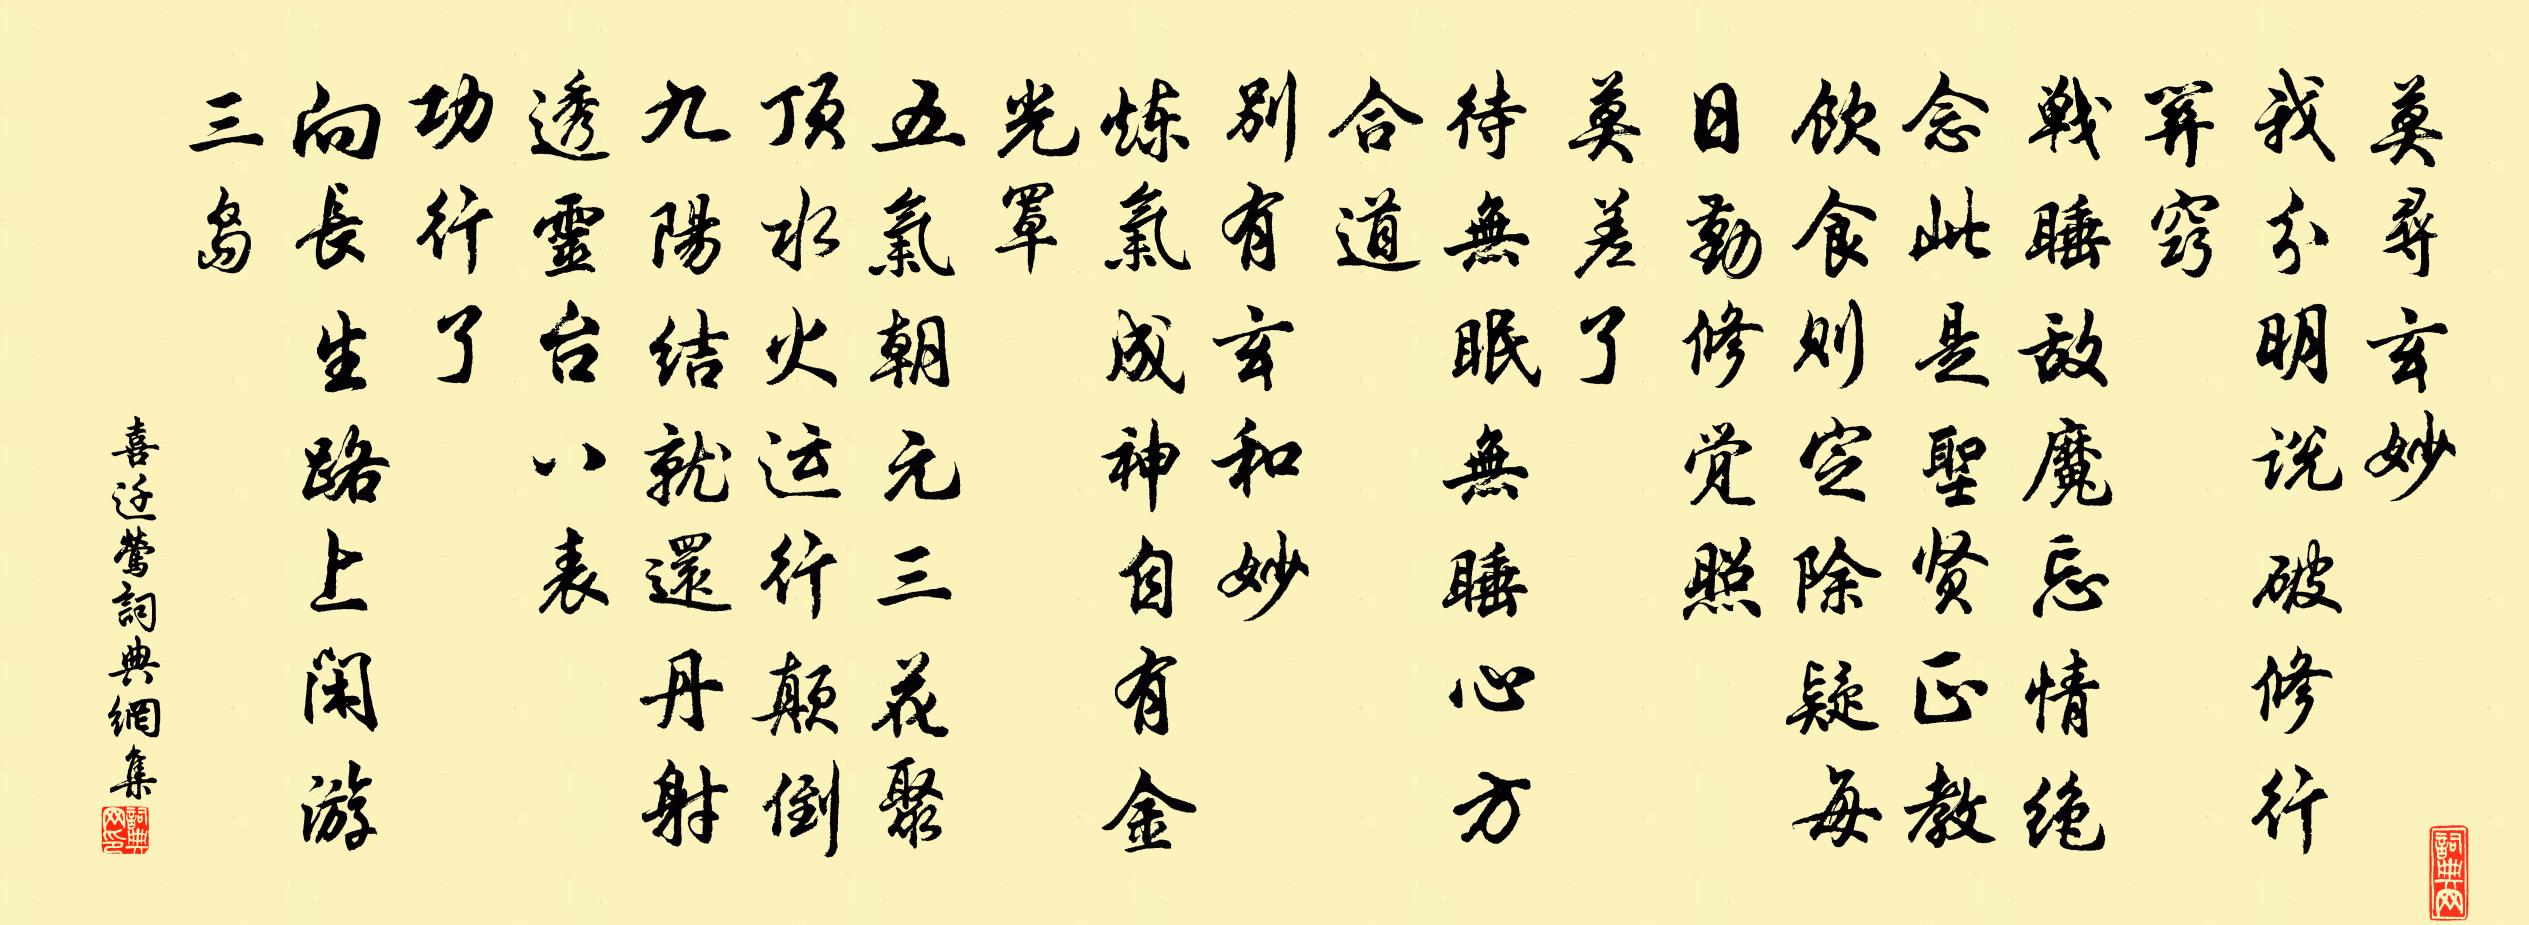 莫尋玄妙
我分明说破修行
関窍
戦睡敌魔忘情绝
念此是聖贤正教
飲食则定除疑每
日勤修觉照
莫差了
待無眠無睡心方
合道
别有玄和妙
炼氣成神自有金
光罩
五氣朝元三花聚
顶水火运行颠倒
九陽结就還丹射
透靈台八表
功行了
向長生路上闲游
三岛
喜迁莺詞典網集
詞典网印
詞典网